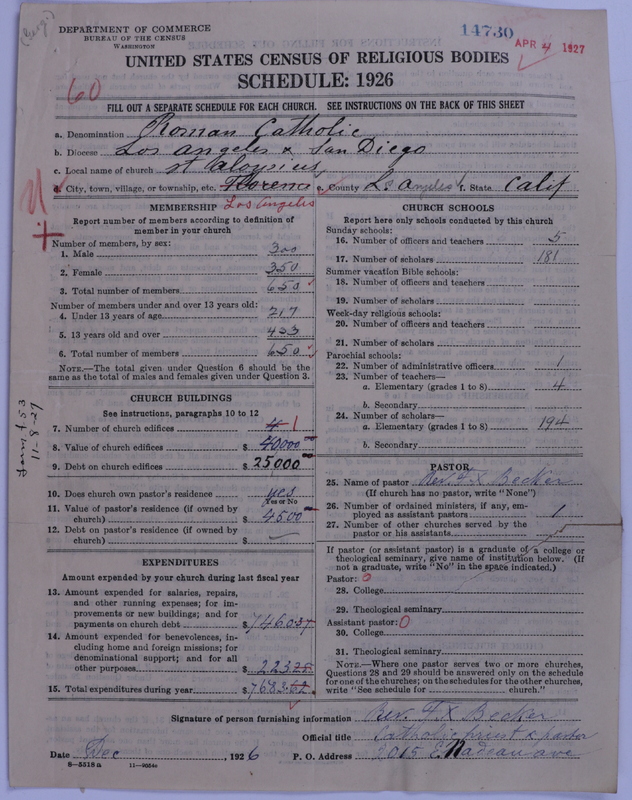 DEPARTMENT OF COMMERCE
BUREAU OF THE CENSUS
WASHINGTON
14730
APR 4 1927
UNITED STATES CENSUS OF RELIGIOUS BODIES
SCHEDULE: 1926
60
FILL OUT A SEPARATE SCHEDULE FOR EACH CHURCH. SEE INSTRUCTIONS ON THE BACK OF THIS SHEET
a. Denomination Roman Catholic
b. Diocese Los Angeles & San Diego
c. Local name of church St Aloysius
d. City, town, village, or township, etc. Florence e. County L. Angeles f. State Calif
Los Angeles
MEMBERSHIP
Report number of members according to definition of
member in your church
Number of members, by sex:
1. Male 300
2. Female 350
3. Total number of members 650
Number of members under and over 13 years old:
4. Under 13 years of age 217
5. 13 years old and over 433
6. Total number of members 650
NOTE.—The total given under Question 6 should be the
same as the total of males and females given under Question 3.
CHURCH BUILDINGS
See instructions, paragraphs 10 to 12
7. Number of church edifices 4 1
8. Value of church edifices $ 40,000
9. Debt on church edifices $ 25000
10. Does church own pastor's residence yes
Yes or No
11. Value of pastor's residence (if owned by
church) $ 4500
12. Debt on pastor's residence (if owned by
church) $
EXPENDITURES
Amount expended by your church during last fiscal year
13. Amount expended for salaries, repairs,
and other running expenses; for im-
provements or new buildings; and for
payments on church debt $ 7460.37
14. Amount expended for benevolences, in-
cluding home and foreign missions; for
denominational support; and for all
other purposes $ 223.25
15. Total expenditures during year $ 7683.62
CHURCH SCHOOLS
Report here only schools conducted by this church
Sunday schools:
16. Number of officers and teachers 5
17. Number of scholars 181
Summer vacation Bible schools:
18. Number of officers and teachers
19. Number of scholars
Week-day religious schools:
20. Number of officers and teachers
21. Number of scholars
Parochial schools:
22. Number of administrative officers 1
23. Number of teachers—
a. Elementary (grades 1 to 8) 4
b. Secondary
24. Number of scholars—
a. Elementary (grades 1 to 8) 194
b. Secondary
PASTOR
25. Name of pastor Rev. F X Becker
(If church has no pastor, write "None")
26. Number of ordained ministers, if any, em-
ployed as assistant pastors 1
27. Number of other churches served by the
pastor or his assistants
If pastor (or assistant pastor) is a graduate of a college or
theological seminary, give name of institution below. (If
not a graduate, write "No" in the space indicated.)
Pastor: 0
28. College
29. Theological seminary
Assistant pastor: 0
30. College
31. Theological seminary
NOTE.—Where one pastor serves two or more churches,
Questions 28 and 29 should be answered only on the schedule
for one of the churches; on the schedules for the other churches,
write "See schedule for church."
Signature of person furnishing information Rev. F X Becker
Official title Catholic priest & pastor
Date Dec , 1926 P. O. Address 2015 E. Nadeau ave
8—5518a 11—9554c
11-8-27